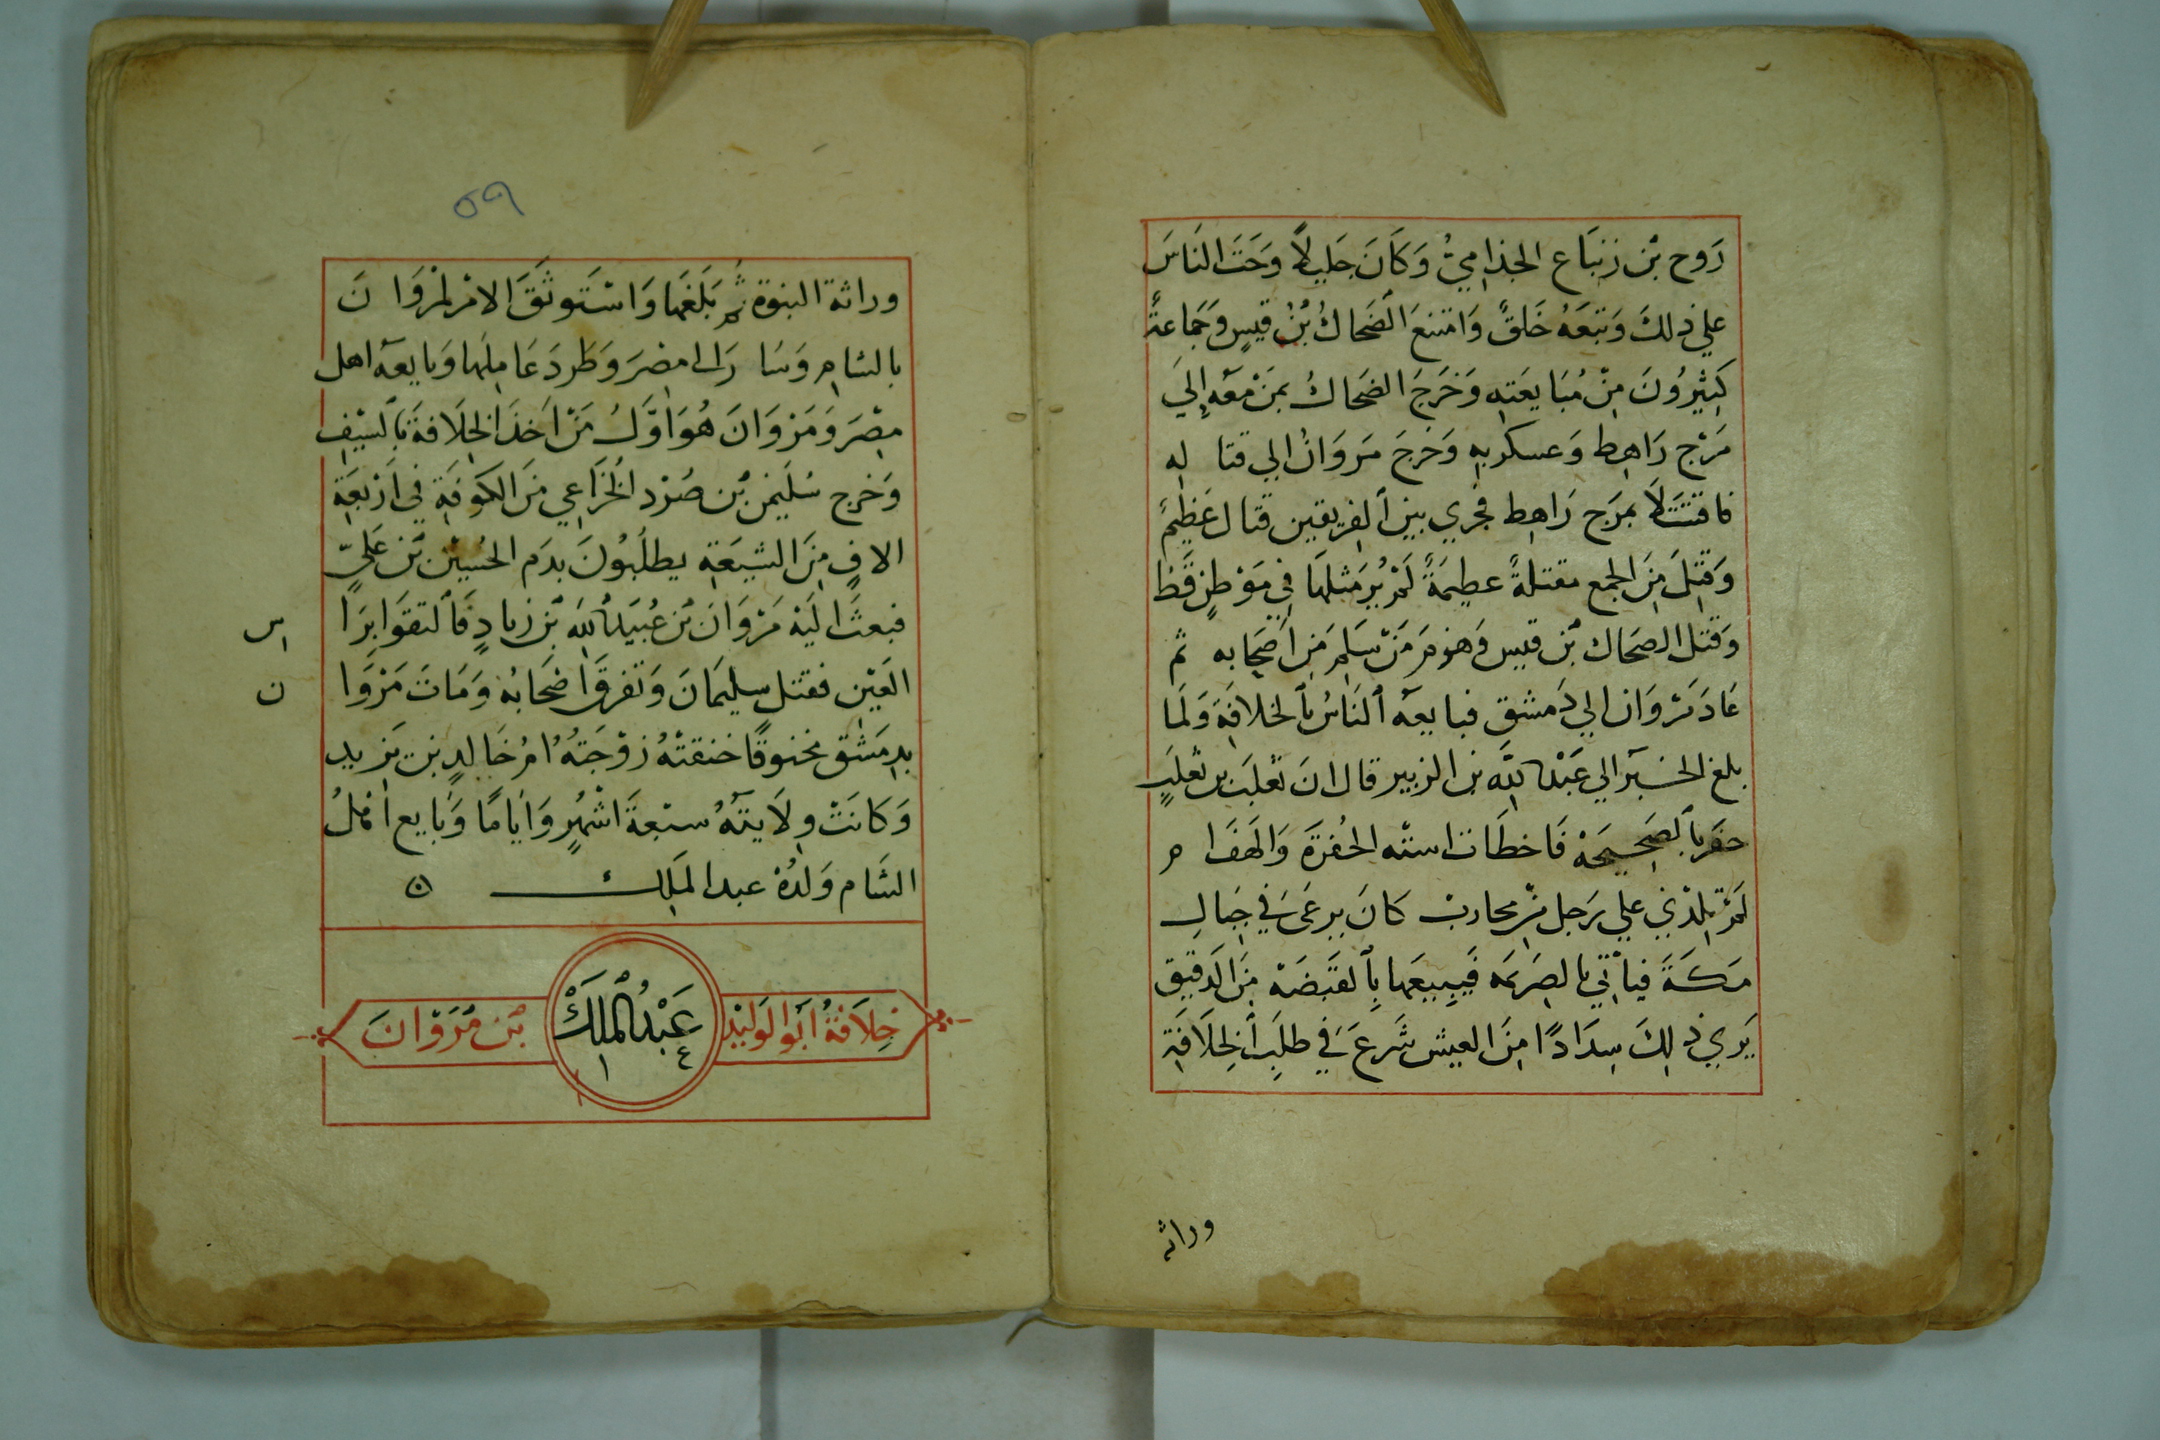 رَوح بْن زنبَاع الجذاميّ وَكَانَ جَليلاً وَحَثَ النَاسَ
علي ذلكَ وَتبَعَهُ خَلقٌ وَامتنعَ الضَحاكُ بْنُ قيسٍ وَجَمَاعةٌ
كَثِيْرُونَ مِنْ مُبَايعَتِهِ وَخَرَجَ الضَحاكُ بمَنْ مَعَه إليَ
مَرْج رَاهِط وَعسكر بِهِ وَخرجَ مَروَانُ الي قتا له
فاقتتَلَا بمَرَج رَاهِط فجري بين الفريقين قتال عَظِيمٌ
وَقتِلَ مِنَ الجمع مقتلةً عظيمَةً لَمْ يُرَ مثلهَا في مَوْطِنٍ قَط
وَقتل الضحاك بْن قيس وَهزم مَنْ سَلِمَ مِن اصَحَابه ثم
عَادَ مَرْوَان الي دَمشق فبايعه النَاسُ بالخلافَة وَلمَا
بلغ الخبَر الي عَبْد اللَّه بن الزبير قال انَ ثعْلبَ بن ثعْلبٍ
حفر بالصَحِيحَهْ فَاخطَات استْه الحُفرَةَ وَالهَفَا م
لمَ تلدْني علي رَجل مِنْ محارب كانَ يرعَىَ في جِبَالِ
مَكةَ فيأتي بالصِرَمَه فَيبيعَها بِالقَبَضَة مِنَ الدقيق
يَري ذلِكَ سِدَادًا مِنَ العيش شَرعَ في طلَبِ الخِلَافَةِ
وراثه
٥٩
وراثة النبوة ثُم بَلغَهَا وَاسْتَوثقَ الامْر لمرْوَا نَ
بالشام وَسَا رَ الى مِصْرَ وَطَردَ عَامِلَها وَبايعَه اهل
مِصْرَ وَمَرْوَانَ هُوَ اوَّلُ مَنْ اَخذَ الخِلَافةَ بالسَيْفِ
وَخرج سُليمٰن بْن صُرْد الخُزَاعِي منَ الكوفَةِ في اَرْبعَةِ
الافٍ مِنَ الشيعَةِ يطلبُونَ بدَم الحُسَيْن بْن عَليّ
فبعثَ اليَهْ مَرْوَانَ بْن عُبَيد اللَه بْن زيادٍ فَالتقوَا بِرَا
اس
العَيْن فقتل سليمَانَ وَتفرقَ اصْحَابُه وَمَاتَ مَرْوَا
ن
بدِمَشْق مخنوقًا خنقتْهُ زوْجَتُهُ امُ خَالدٍ بن يَزيد
وَكانَتْ ولَايتَهُ سبْعةَ اشْهُرٍ وَايَامًا وَبَايع اهْلُ
الشَام وَلدُهْ عبد المَلِك ن
خِلَافَةُ أبَو الوَلِيْد عَبْدُ الْملِكْ بْن مَرْوَانَ